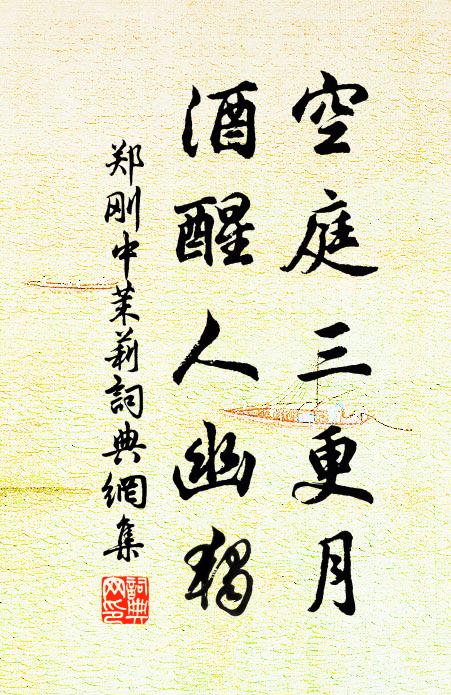 空庭三更月
酒醒人幽獨
郑刚中茉莉詞典網集
詞典
网印